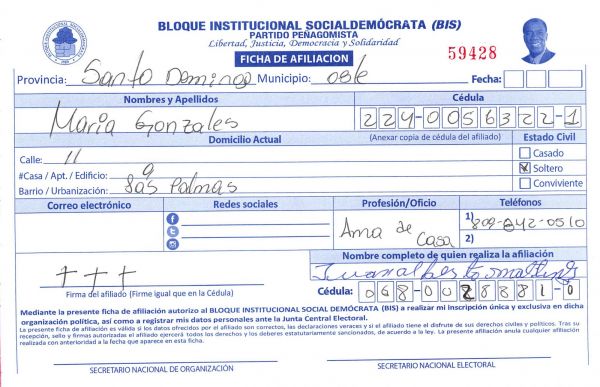 BLOQUE INSTITUCIONAL SOCIALDEMÓCRATA (BIS)
PARTIDO PEÑAGOMISTA
Libertad, Justicia, Democracia y Solidaridad
FICHA DE AFILIACIÓN
59428
Provincia: Santo Domingo Municipio: oste Fecha:
Nombres y Apellidos Cédula
Maria Gonzales 224-0056322-1
Domicilio Actual (Anexar copia de cédula del afiliado) Estado Civil
Calle: 11 Casado
#Casa / Apt. / Edificio: 9 X Soltero
Barrio / Urbanización: las Palmas Conviviente
Correo electrónico Redes sociales Profesión/Oficio Teléfonos
Ama de casa
1) 809-842-0510
2)
Nombre completo de quien realiza la afiliación
+++
Firma del afiliado (Firme igual que en la Cédula)
Cédula: 068-0028881-0
Mediante la presente ficha de afiliación autorizo al BLOQUE INSTITUCIONAL SOCIAL DEMÓCRATA (BIS) a realizar mi inscripción única y exclusiva en dicha
organización política, así como a registrar mis datos personales ante la Junta Central Electoral.
La presente ficha de afiliación es válida si los datos ofrecidos por el afiliado son correctos, las declaraciones veraces y si el afiliado tiene el disfrute de sus derechos civiles y políticos. Tras su
recepción, sello y firmas autorizadas el afiliado ejercerá todos los derechos y los deberes estatutariamente sancionados, de acuerdo a la ley. La presente afiliación anula cualquier afiliación
realizada con anterioridad a la fecha que aparece en esta ficha.
SECRETARIO NACIONAL DE ORGANIZACIÓN SECRETARIO NACIONAL ELECTORAL